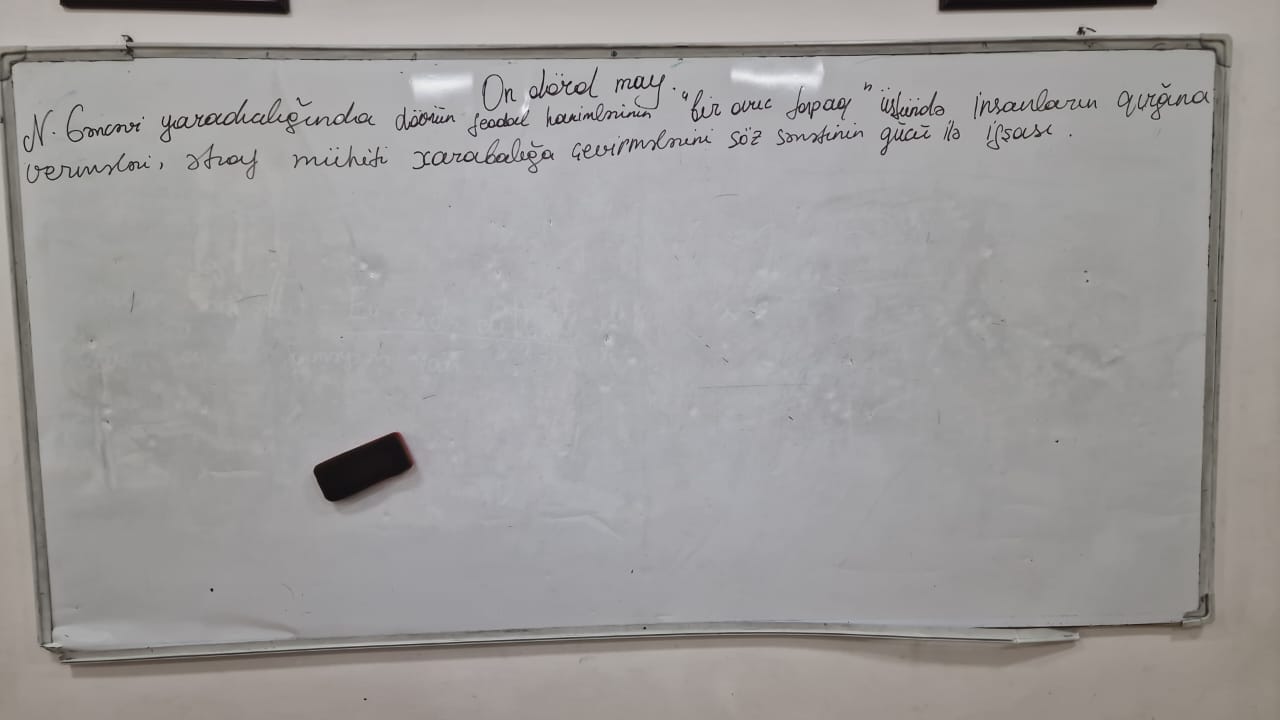 On dörd may.
N. Gəncəvi yaradıcılığında dövrün feodal hakimlərinin "bir ovuc torpaq" üstündə insanların qırğına
vermələri, ətraf mühiti xarabalığa çevirmələrini söz sənətinin gücü ilə ifşası.